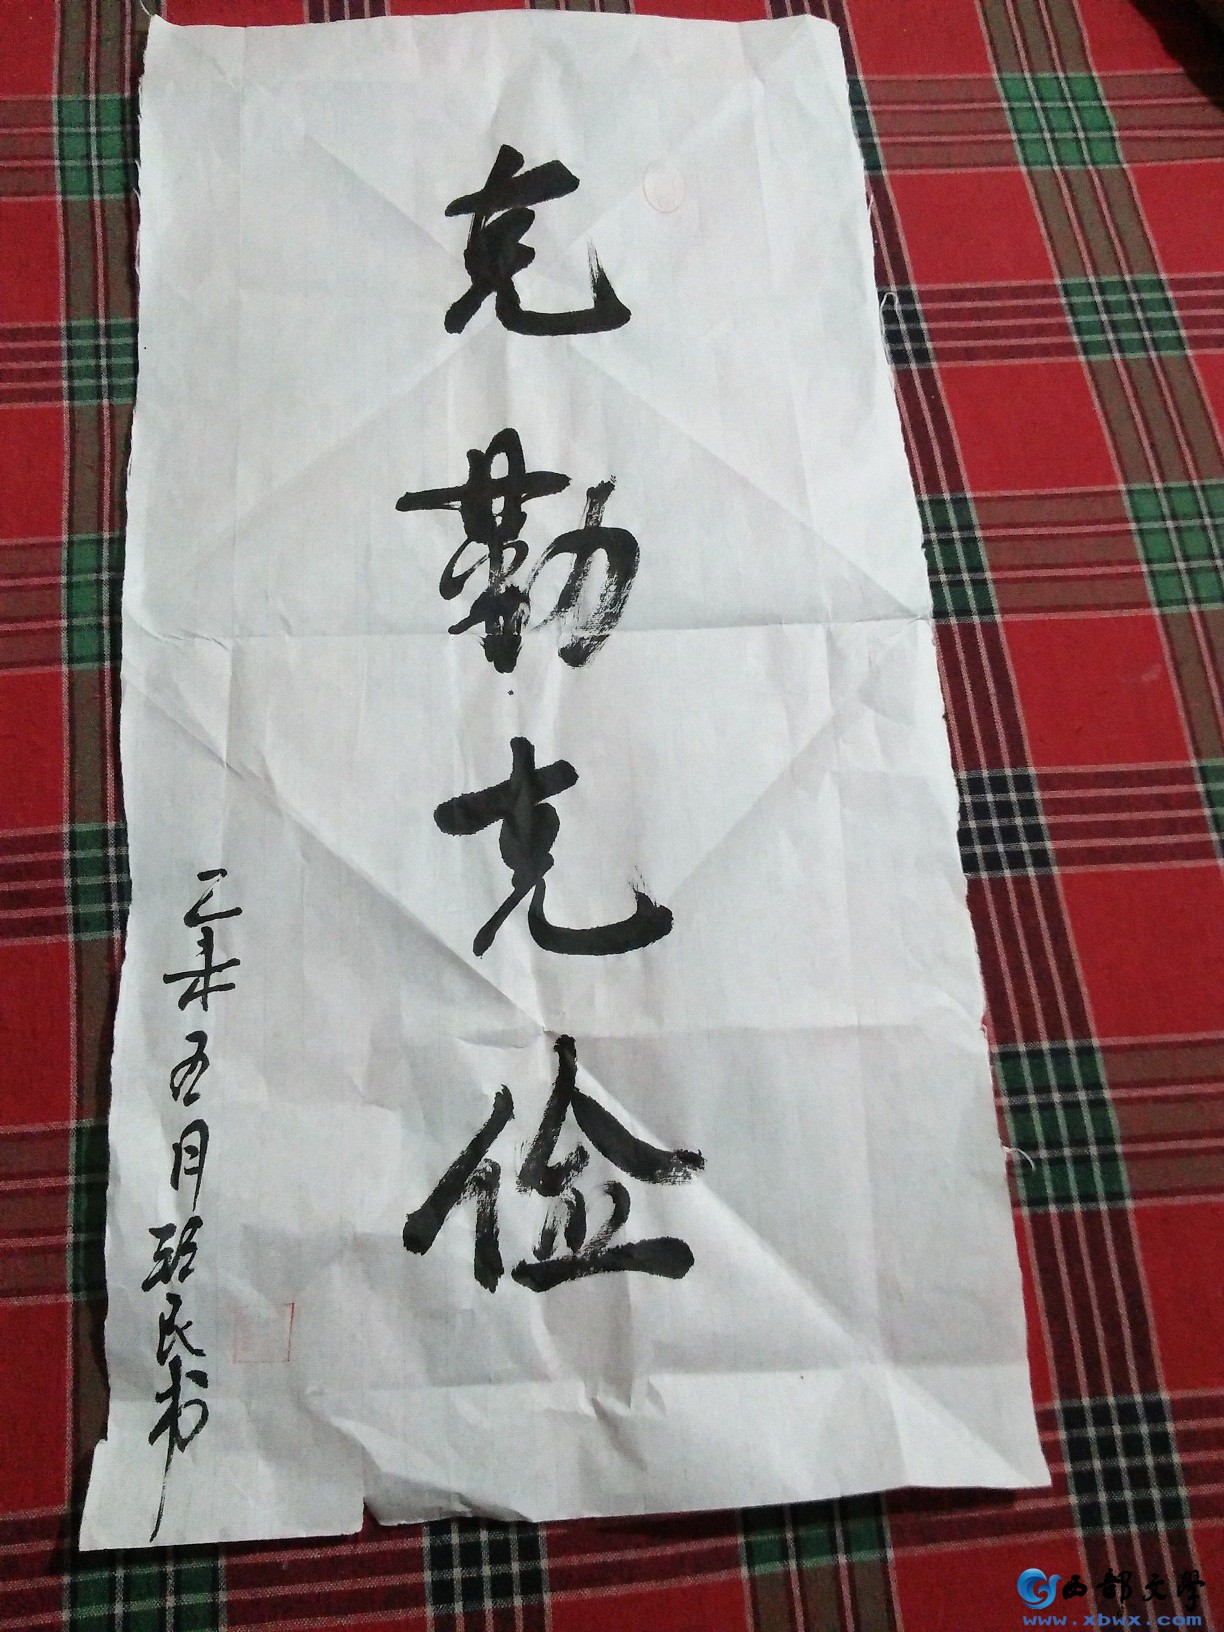 克勤克俭
乙未五月 民书
西部文学
www.xbwx.com